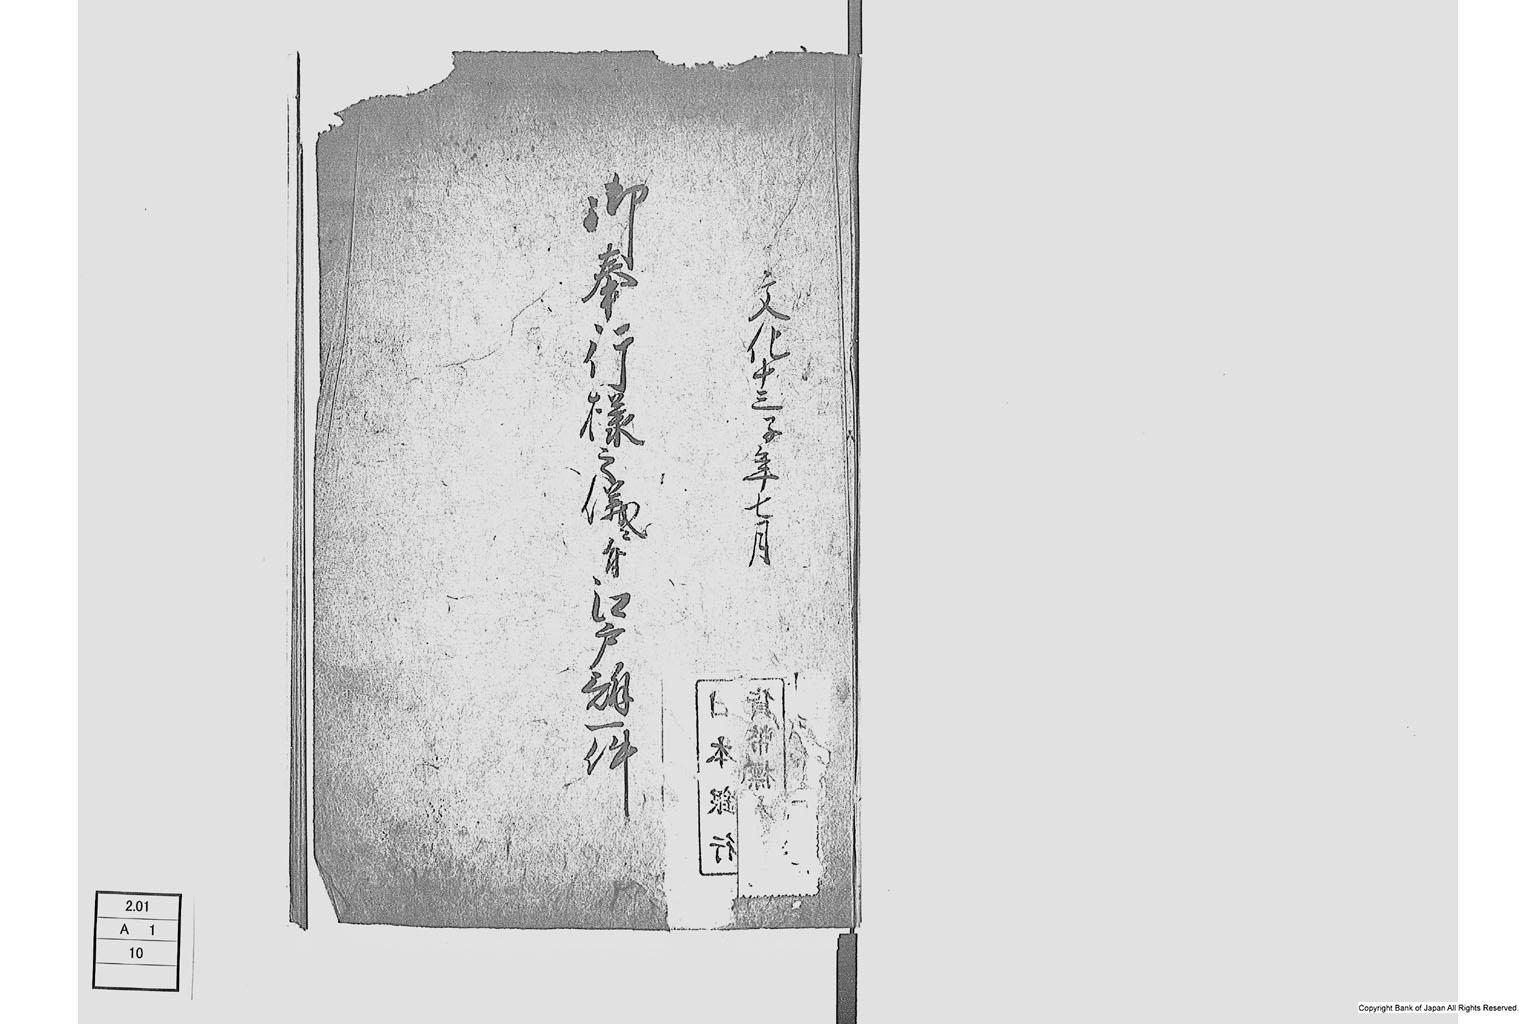 文化十三子年七月
御奉行様之儀ニ付江戸旅一件
貨幣標
日本銀行
2.01
A 1
10
Copyright Bank of Japan All Rights Reserved.